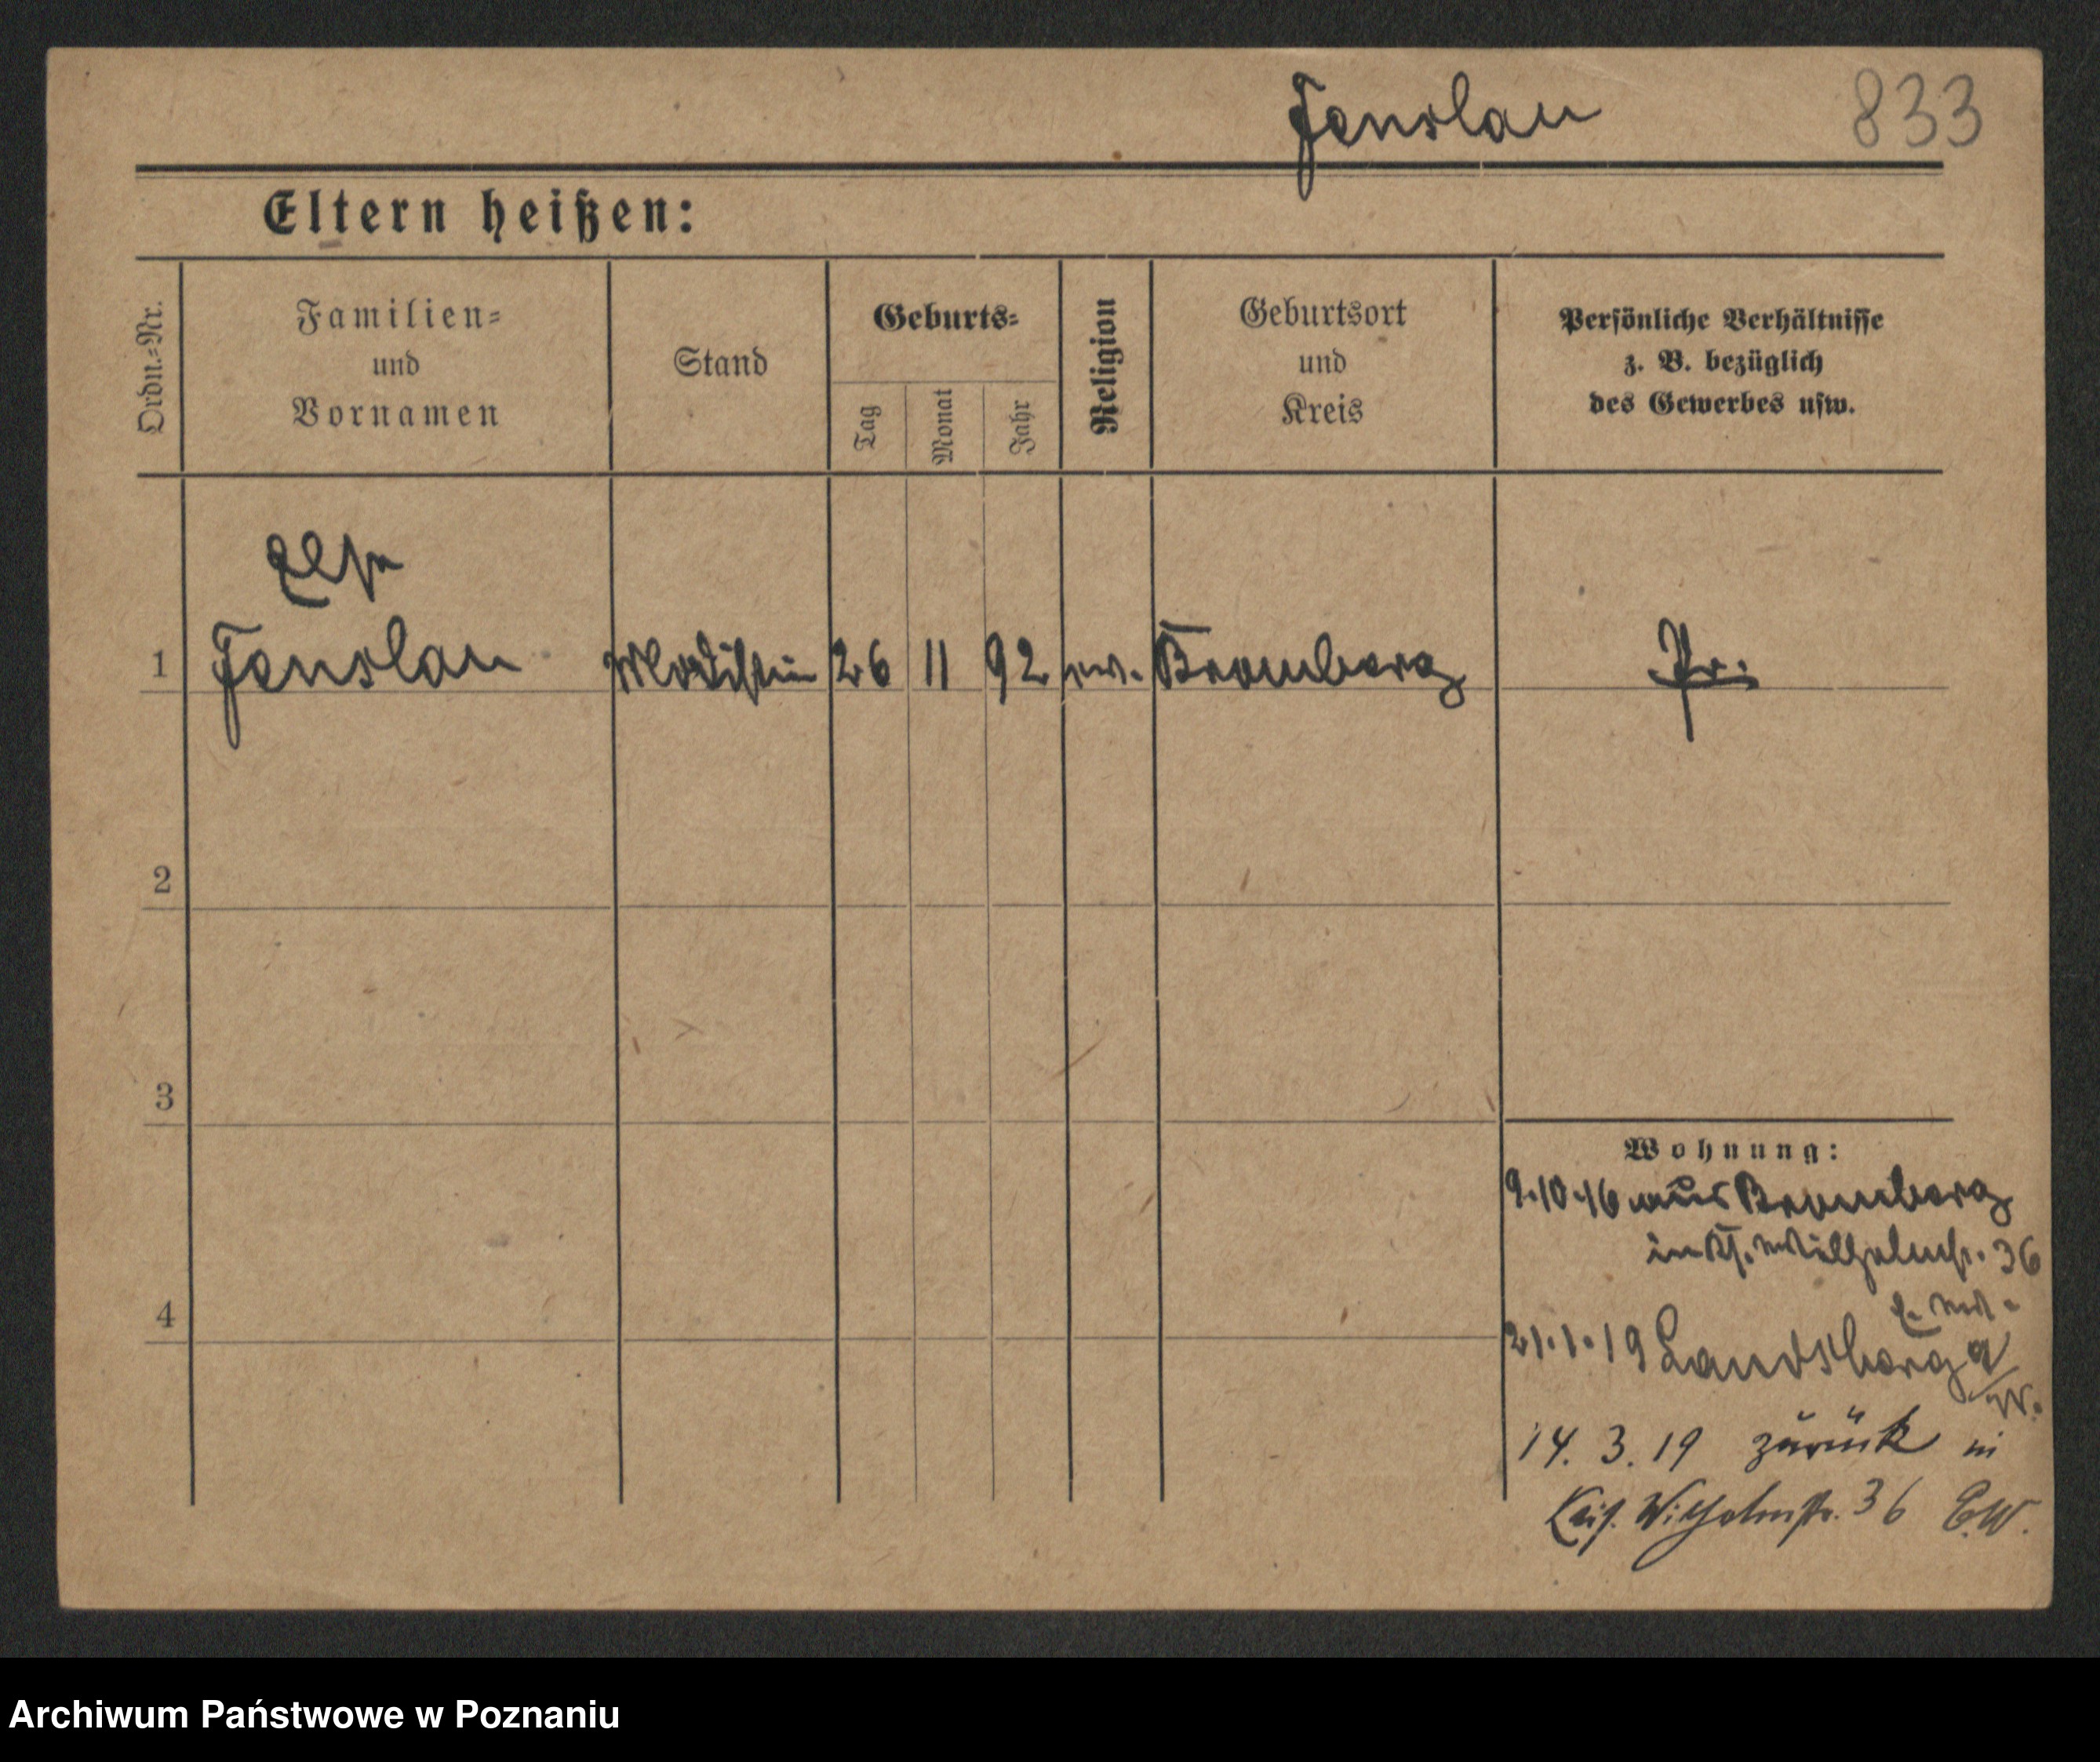 Fenslau 833
Eltern heißen:
Ordn.-Nr.
Familien-
und
Vornamen
Stand
Geburts-
Tag
Monat
Jahr
Religion
Geburtsort
und
Kreis
Persönliche Verhältnisse
z. B. bezüglich
des Gewerbes usw.
Elsa
1 Fenslau Modistin 26 11 92 ev. Bromberg Pr.
2
3
4
Wohnung:
9.10.16 aus Bromberg
in Ks. Wilhelmstr. 36
21.1.19 Landsberg a/W.
14. 3. 19 zurück in
Kais. Wilhelmstr. 36 E.W.
Archiwum Państwowe w Poznaniu